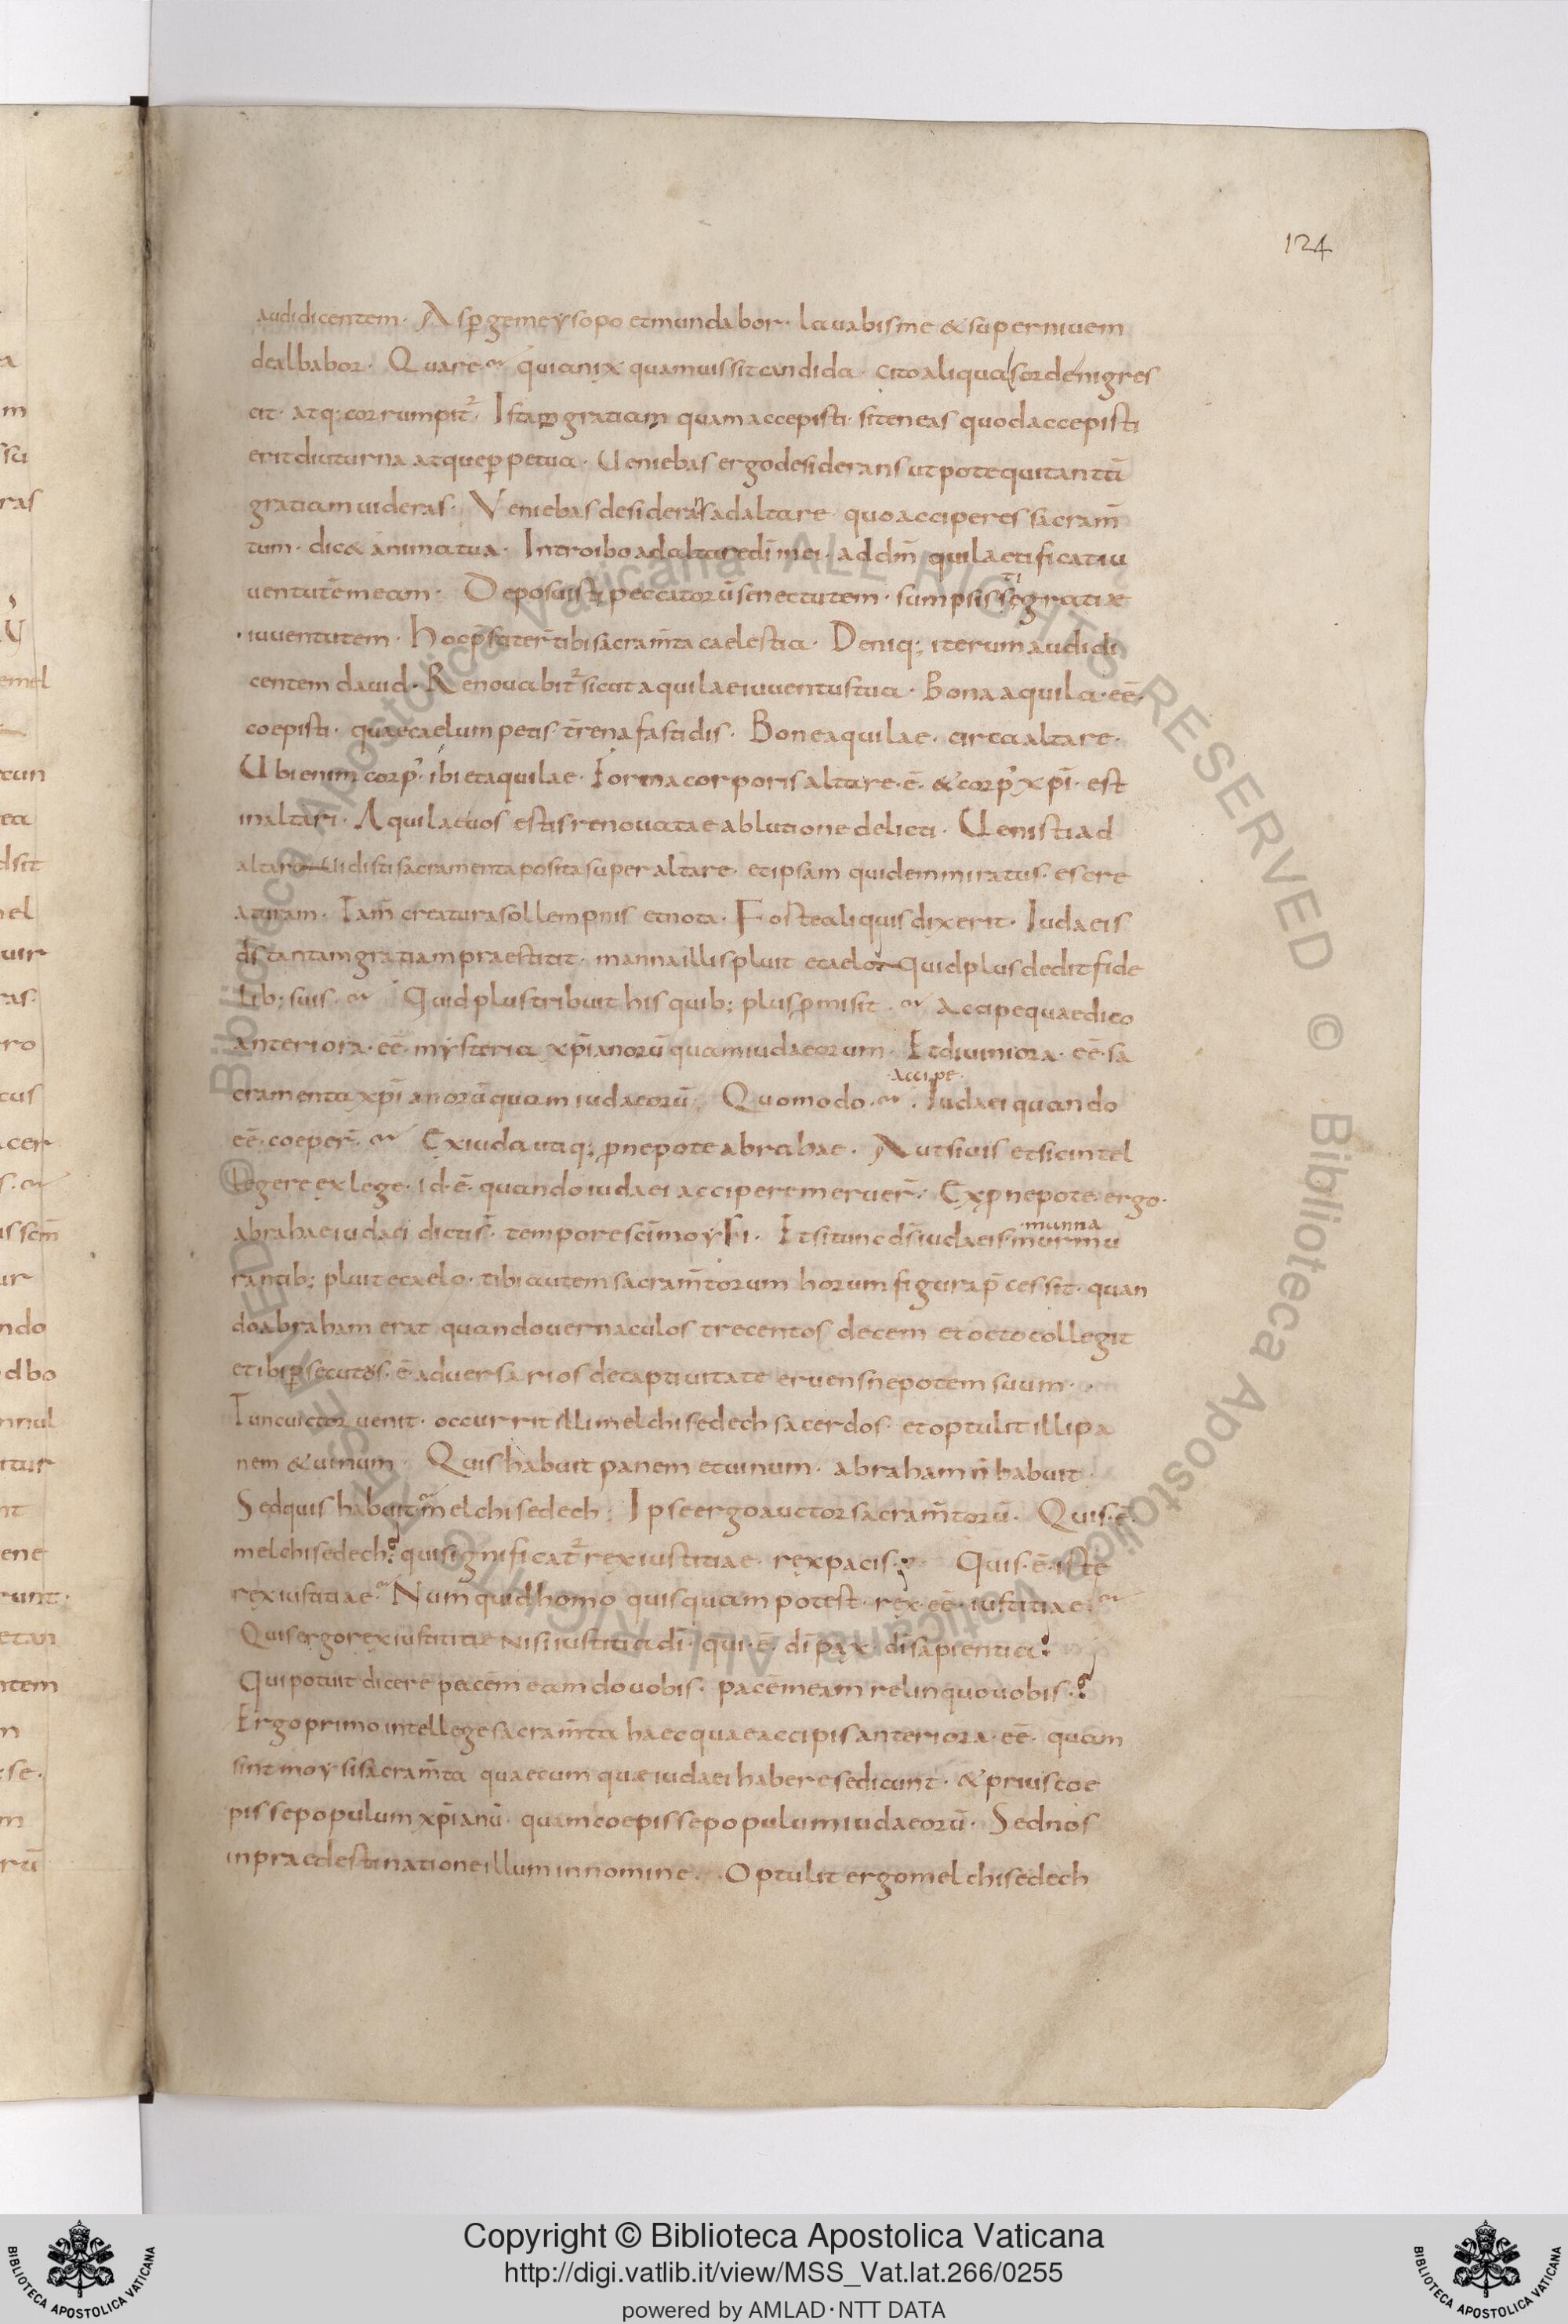 124
audi dicentem · Asp̄ge me ysopo et mundabor · lavabis me & super nivem
dealbabor · Quare quia nix quamvis sit candida · cito aliqua sorde nigres
cit · atq; corrumpit᷑ · Istam gratiam quam accepisti · si teneas quod accepisti
erit diuturna atque p̄petua · Veniebas ergo desiderans utpote qui tantā
gratiam videras · Veniebas desiderans ad altare quo acciperes sacram̄
tum · dic& anima tua · Introibo ad altare dī mei · ad dm̄ qui laetificat iu
ventutē meam · Deposuisti peccatorū senectutem · sumpsisti gratiæ
iuventutem · Hoc p̄stiter̄ tibi sacram̄ta caelestia · Deniq; iterum audi di
centem david · Renovabit᷑ sicut aquilae iuventus tua · Bona aquila · eē ·
coepisti · quae caelum petis · tr̄rena fastidis · Bone aquilae · circa altare ·
Ubi enim corp' · ibi et aquilae · Forma corporis altare · ē · & corp' xp̄i · est
in altari · Aquilae vos estis renovatae ablutione delicti · Venisti ad
altare vidisti sacramenta posita super altare · et ipsam quidem miratus · es cre
aturam · Tam̄ creatura sollempnis et nota · Forte aliquis dixerit · Iudaeis
ds̄ tantam gratiam praestitit · manna illis pluit e caelo quid plus dedit fide
lib; suis · Quid plus tribuit his quib; plus p̄misit · Accipe quae dico
anteriora · eē · mysteria xp̄ianorū quam iudaeorum · Et diviniora · eē · sa
cramenta xp̄ianorū quam iudaeorū · Quomodo · accipe · Iudaei quando
eē · coeper̄ · Ex iuda utiq; p̄nepote abrahae · Aut si vis et sic intel
legere ex lege · id · ē · quando iudaei accipere meruer̄ · Ex p̄nepote ergo ·
abrahae iudaei dicti s̄ · tempore sc̄i moysi · Et si tunc ds̄ iudaeis manna murmu
rantib; pluit e caelo · tibi autem sacram̄torum horum figura p̄cessit · quan
do abraham erat quando vernaculos trecentos decem et octo collegit
et ibi p̄secutus · ē adversarios de captivitate eruens nepotem suum ·
Tunc victor venit · occurrit illi melchisedech sacerdos · et optulit illi pa
nem & vinum · Quis habuit panem et vinum · abraham n̄ habuit ·
Sed quis habuit melchisedech · Ipse ergo auctor sacram̄torū · Quis · ē ·
melchisedech · qui significat᷑ rex iustitiae · rex pacis · Quis · ē · iste
rex iustitiae Numquid homo quisquam potest · rex · eē · iustitiae ·
Quis ergo rex iustitiæ nisi iustitia dī · qui · ē · dī pax · dī sapientia ·
Qui potuit dicere pacem meam do vobis · pacem meam relinquo vobis ·
Ergo primo intellege sacram̄ta haec quae accipis anteriora · eē · quam
sint moysi sacram̄ta quaecumquæ iudaei habere se dicunt · & prius coe
pisse populum xp̄ianū · quam coepisse populum iudaeorū · Sed nos
in praedestinatione illum in nomine · Optulit ergo melchisedech
Copyright © Biblioteca Apostolica Vaticana
http://digi.vatlib.it/view/MSS_Vat.lat.266/0255
powered by AMLAD·NTT DATA